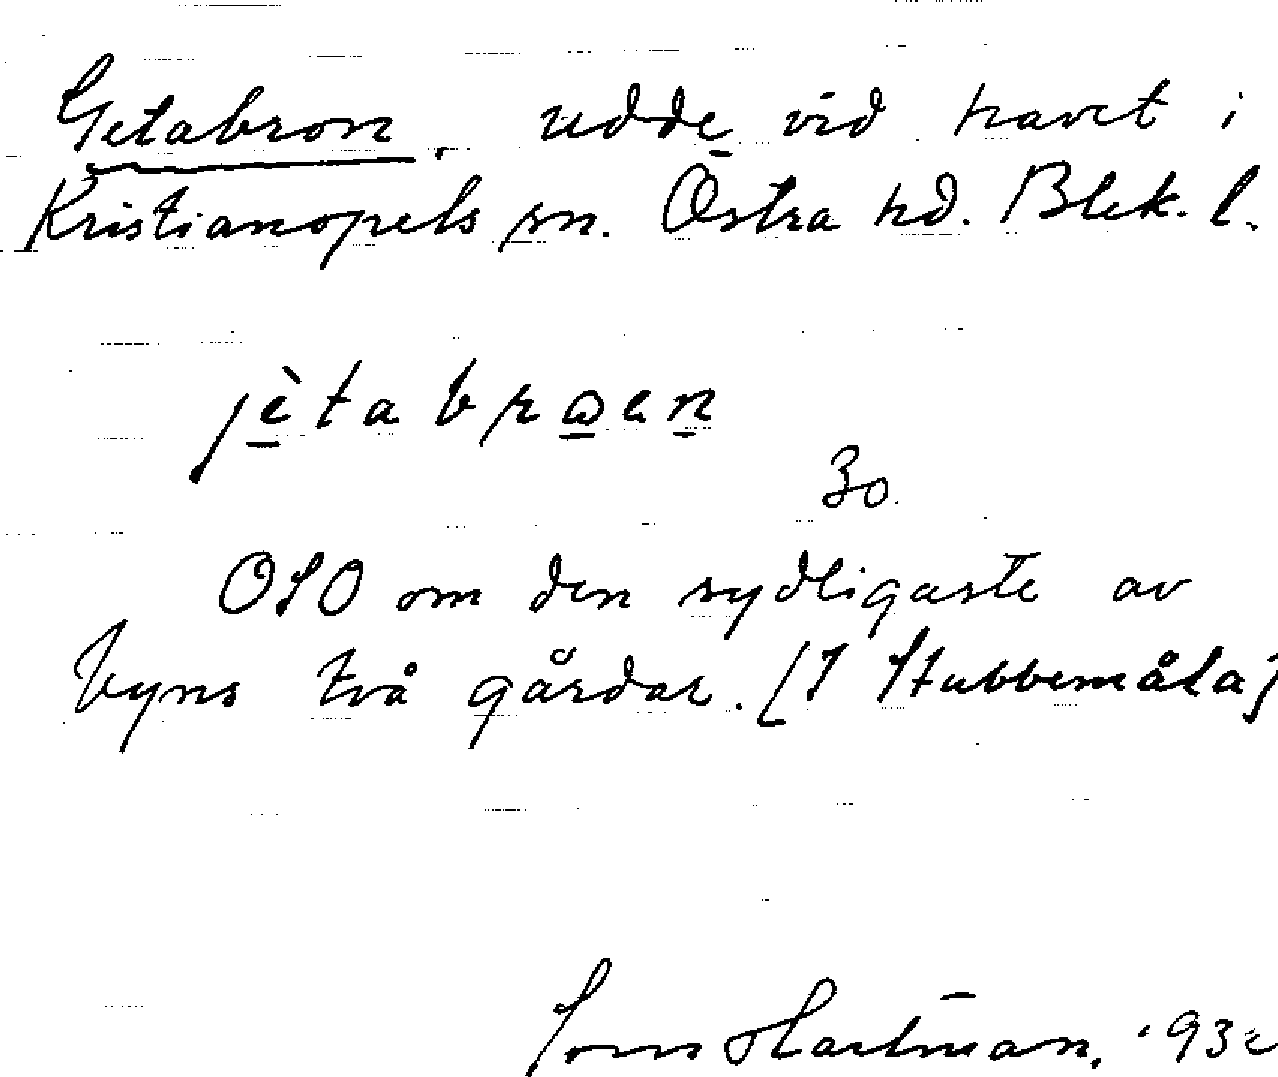 Getabron, udde vid havet i
Kristianopels sn. Östra hd. Blek. l.
jètabroen
30.
OSO om den sydligaste av
byns två gårdar. [I Stubbemåla]
Hartman, 193